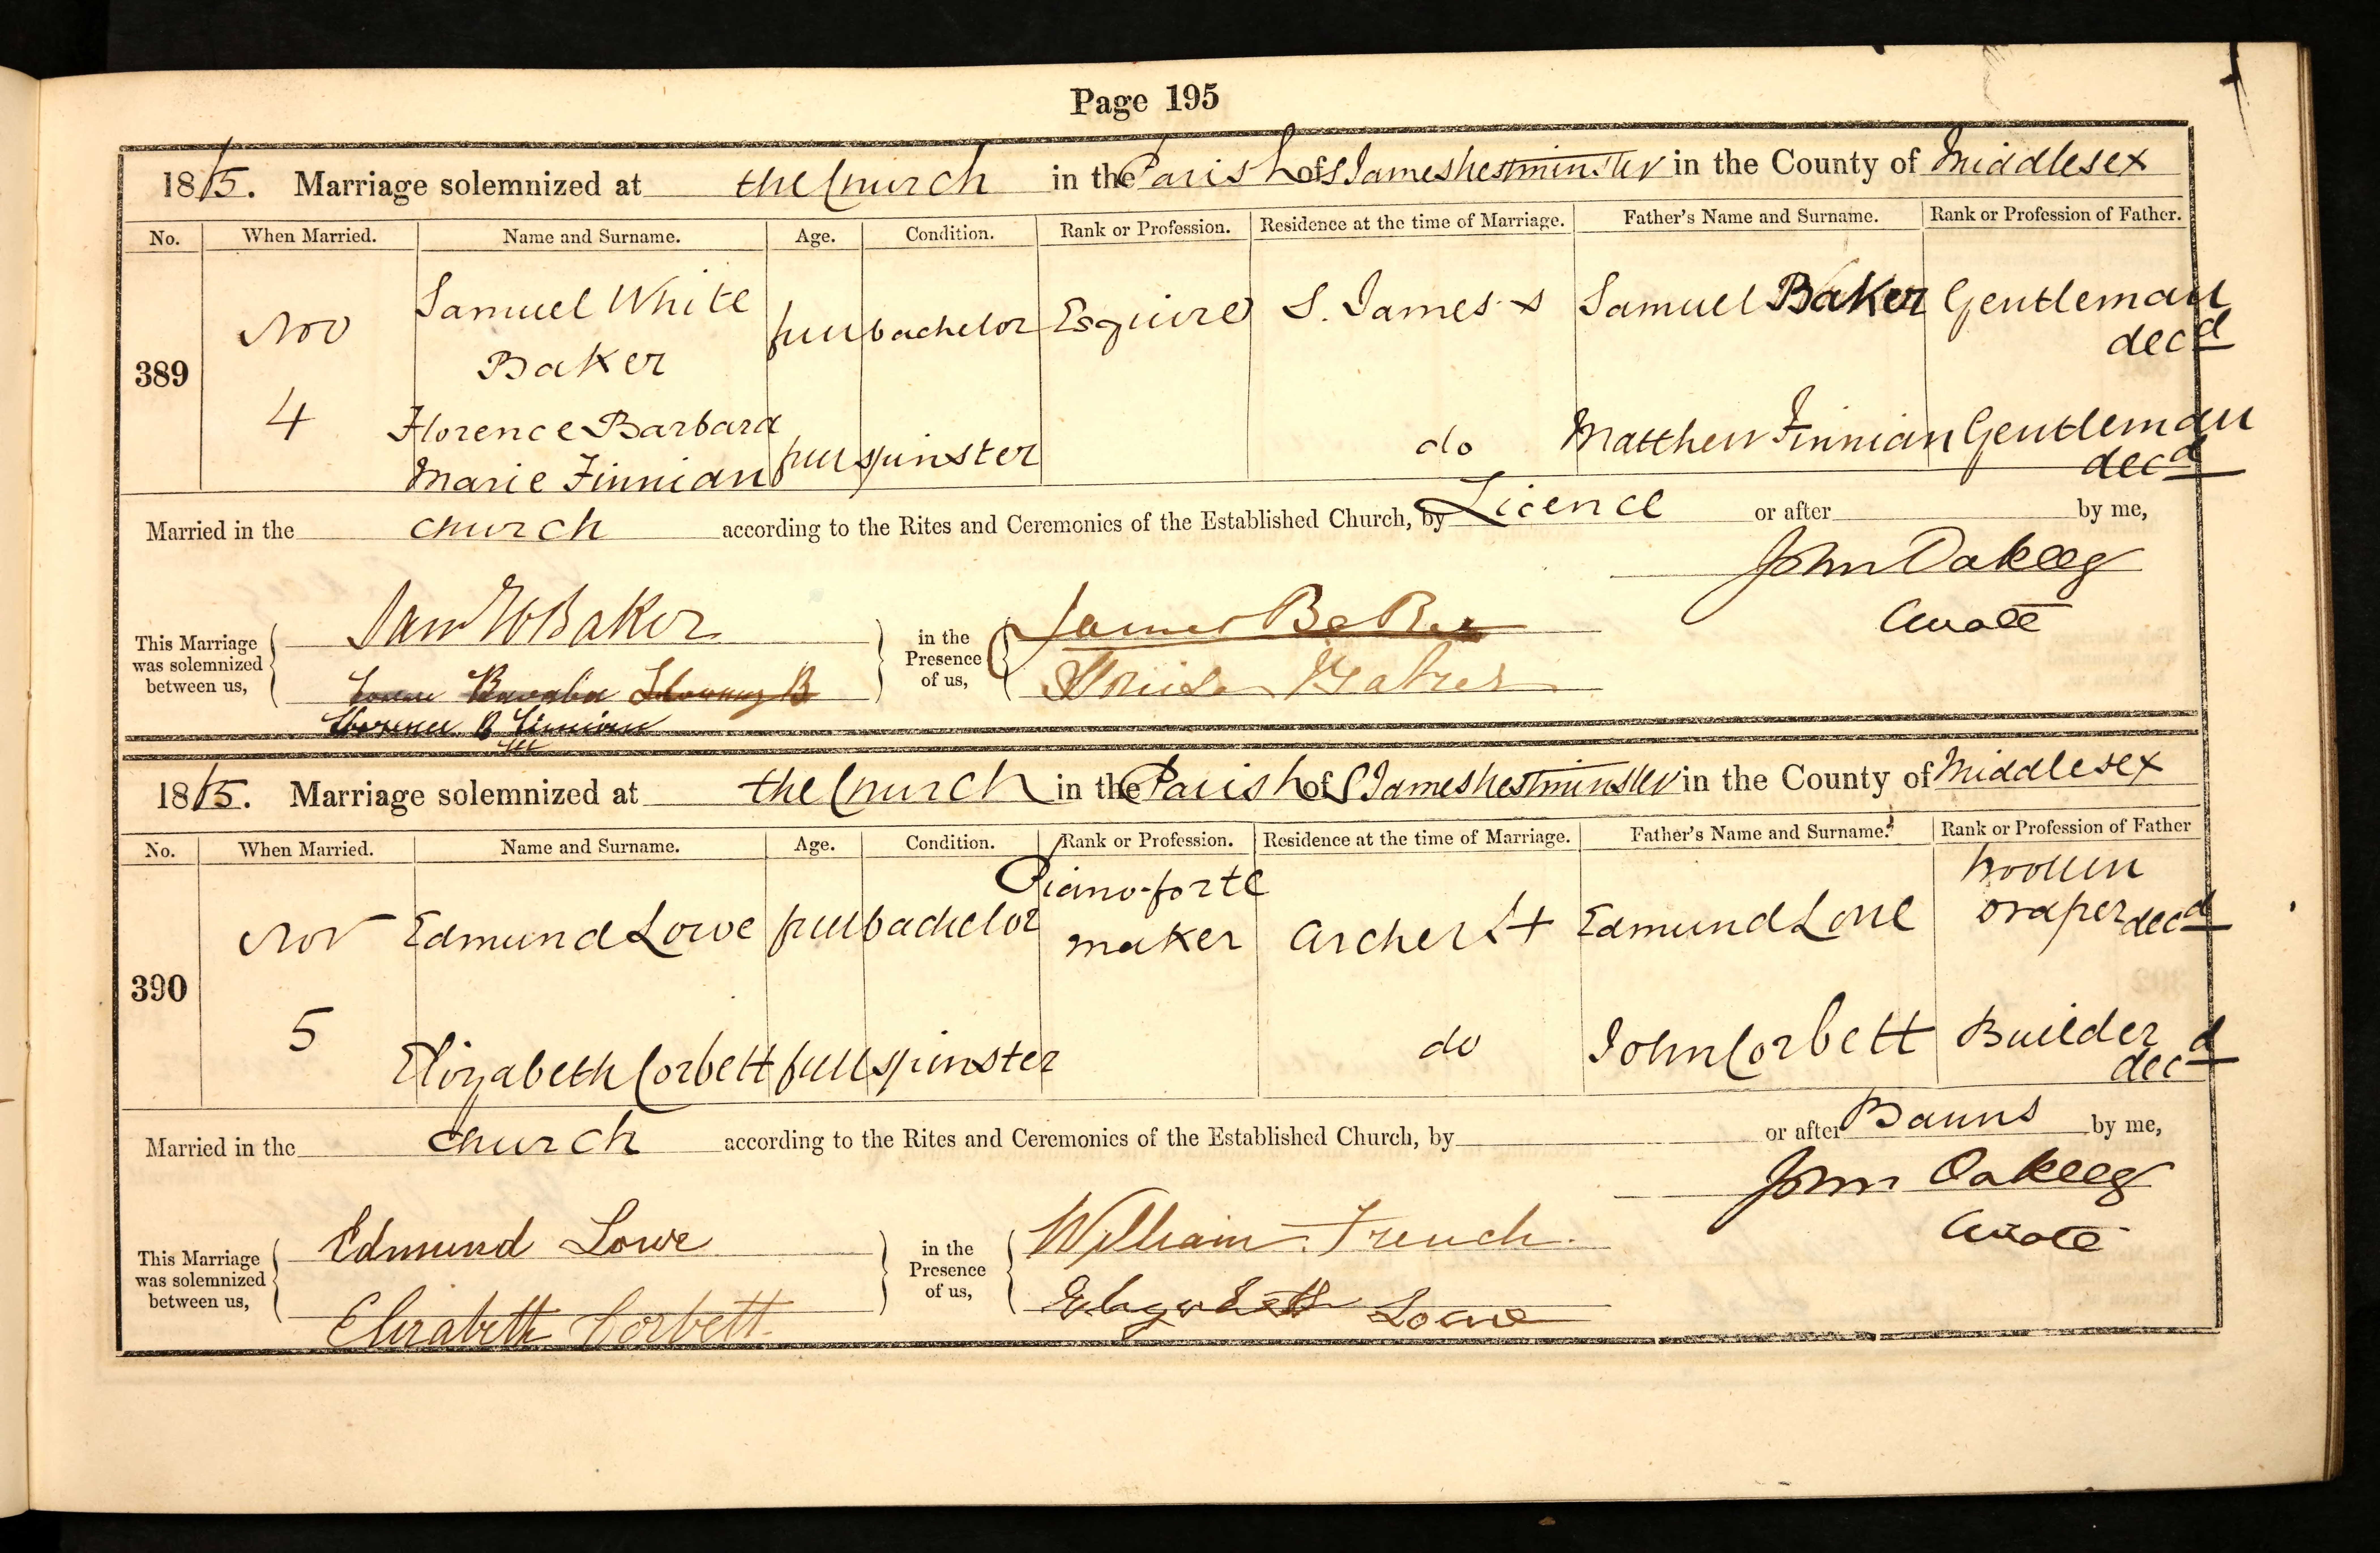 Page 195
18 . Marriage solemnized at the Church in the Parish of S James Westminster in the County of Middlesex
No. When Married. Name and Surname. Age. Condition. Rank or Profession. Residence at the time of Marriage. Father's Name and Surname. Rank or Profession of Father.
Samuel White
Nov full bachelor Esquire S. James's Samuel Baker Gentleman
Baker decd
389
4 Florence Barbara do Matthew Finnian Gentleman
Marie Finnian full spinster decd
Married in the church according to the Rites and Ceremonies of the Established Church, by Licence or after by me,
John Oakley
Curate
This Marriage was solemnized between us, Sam W Baker in the Presence of us, James Baker
Louisa Baker
Florence B Finnian
18 . Marriage solemnized at the Church in the Parish of S James Westminster in the County of Middlesex
No. When Married. Name and Surname. Age. Condition. Rank or Profession. Residence at the time of Marriage. Father's Name and Surname. Rank or Profession of Father
Piano-forte Woollen
Nov Edmund Lowe full bachelor maker Archer St Edmund Lowe Draper decd
390
5 Elizabeth Corbett full spinster do John Corbett Builder
decd
Married in the church according to the Rites and Ceremonies of the Established Church, by or after Banns by me,
John Oakley
Curate
This Marriage was solemnized between us, Edmund Lowe in the Presence of us, William French.
Elizabeth Corbett Lowe